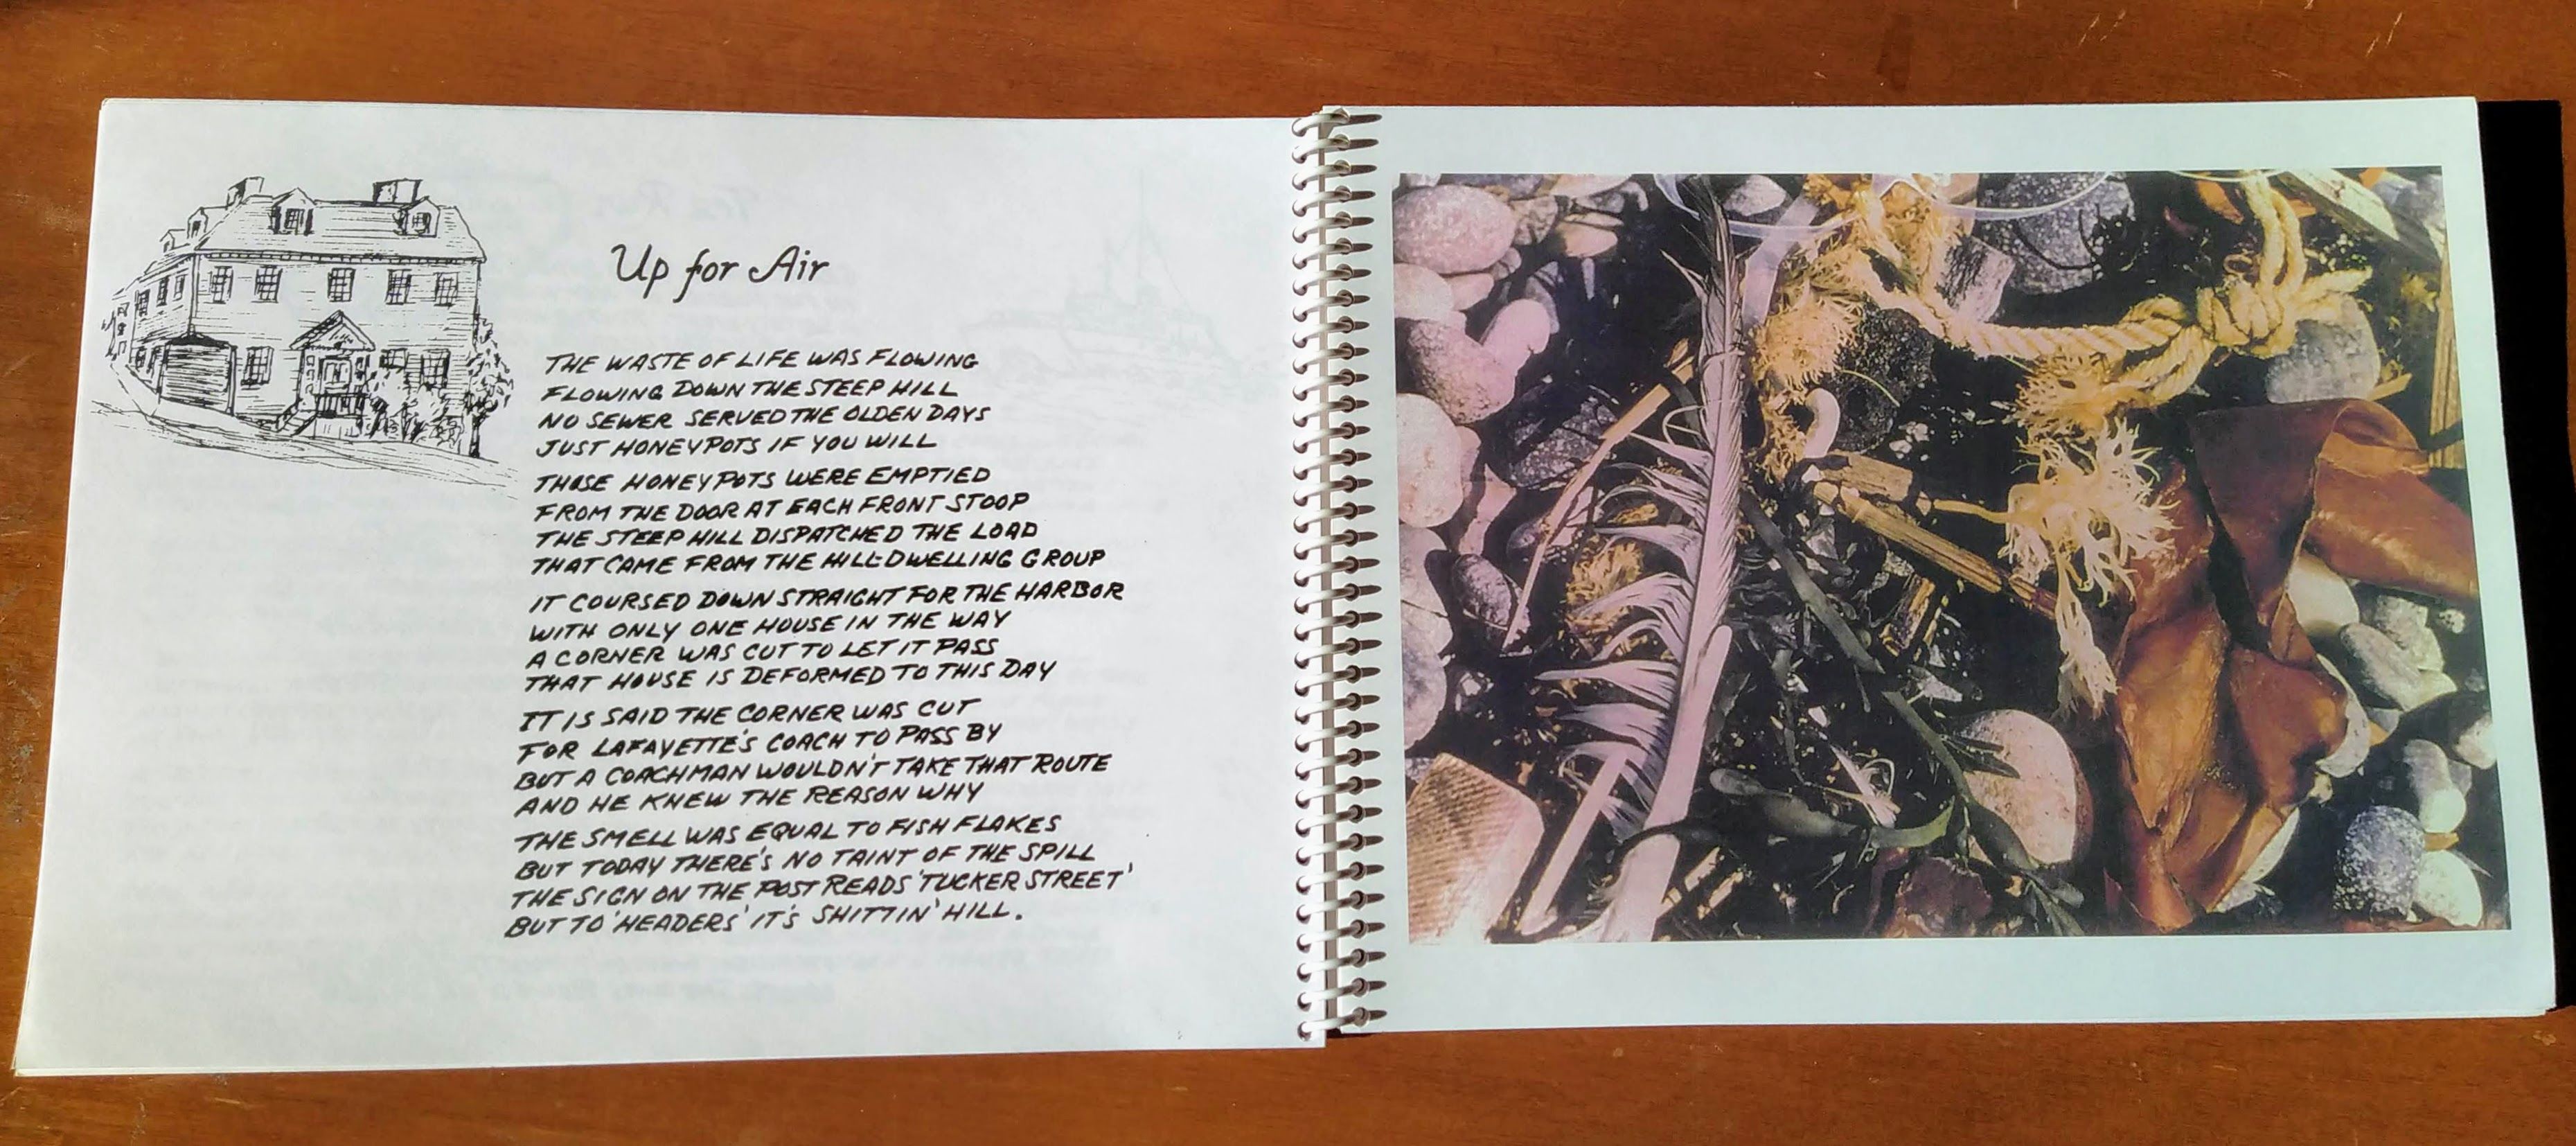 Up for Air
THE WASTE OF LIFE WAS FLOWING
FLOWING DOWN THE STEEP HILL
NO SEWER SERVED THE OLDEN DAYS
JUST HONEYPOTS IF YOU WILL
THOSE HONEYPOTS WERE EMPTIED
FROM THE DOOR AT EACH FRONT STOOP
THE STEEP HILL DISPATCHED THE LOAD
THAT CAME FROM THE HILL-DWELLING GROUP
IT COURSED DOWN STRAIGHT FOR THE HARBOR
WITH ONLY ONE HOUSE IN THE WAY
A CORNER WAS CUT TO LET IT PASS
THAT HOUSE IS DEFORMED TO THIS DAY
IT IS SAID THE CORNER WAS CUT
FOR LAFAYETTE'S COACH TO PASS BY
BUT A COACHMAN WOULDN'T TAKE THAT ROUTE
AND HE KNEW THE REASON WHY
THE SMELL WAS EQUAL TO FISH FLAKES
BUT TODAY THERE'S NO TAINT OF THE SPILL
THE SIGN ON THE POST READS 'TUCKER STREET'
BUT TO 'HEADERS' IT'S SHITTIN' HILL.